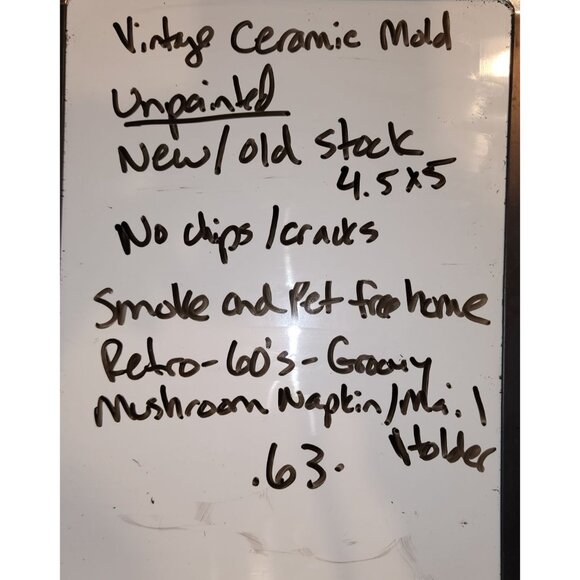 Vintage Ceramic Mold
Unpainted
New/old stock
4.5x5
No chips/cracks
Smoke and Pet free home
Retro-60's-Groovy
Mushroom Napkin/Mail
Holder
.63.